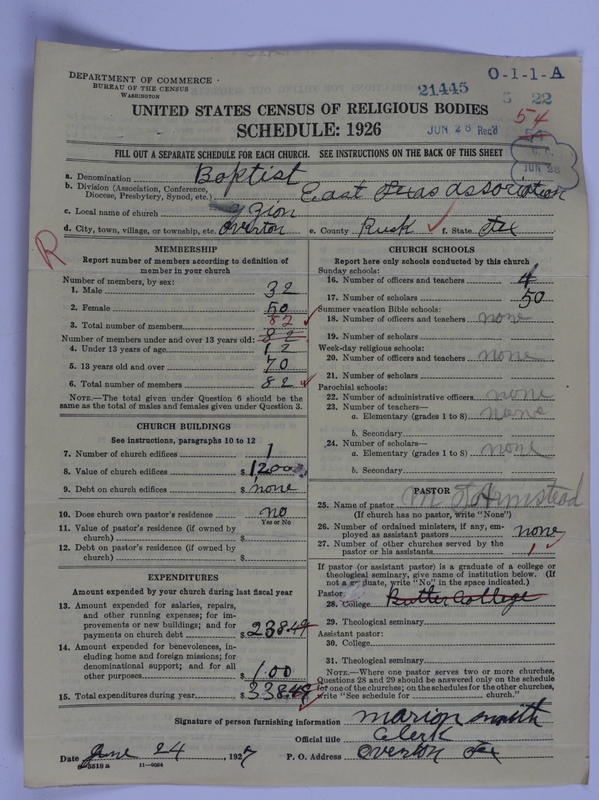 DEPARTMENT OF COMMERCE
BUREAU OF THE CENSUS
WASHINGTON
21445
O-1-1-A
5 22
54
54
UNITED STATES CENSUS OF RELIGIOUS BODIES
SCHEDULE: 1926
JUN 28 Rec'd
JUN 28
FILL OUT A SEPARATE SCHEDULE FOR EACH CHURCH. SEE INSTRUCTIONS ON THE BACK OF THIS SHEET
a. Denomination Baptist
b. Division (Association, Conference, Diocese, Presbytery, Synod, etc.) East Texas association
c. Local name of church Zion
d. City, town, village, or township, etc. Overton e. County Rusk f. State Tex
R
MEMBERSHIP
Report number of members according to definition of
member in your church
Number of members, by sex:
1. Male 32
2. Female 50
3. Total number of members 82
82
Number of members under and over 13 years old:
4. Under 13 years of age 12
5. 13 years old and over 70
6. Total number of members 82
NOTE.—The total given under Question 6 should be the
same as the total of males and females given under Question 3.
CHURCH BUILDINGS
See instructions, paragraphs 10 to 12
7. Number of church edifices 1
8. Value of church edifices $1200
9. Debt on church edifices $none
10. Does church own pastor's residence? no
Yes or No
11. Value of pastor's residence (if owned by
church) $
12. Debt on pastor's residence (if owned by
church) $
EXPENDITURES
Amount expended by your church during last fiscal year
13. Amount expended for salaries, repairs,
and other running expenses; for im-
provements or new buildings; and for
payments on church debt $238.49
14. Amount expended for benevolences, in-
cluding home and foreign missions; for
denominational support; and for all
other purposes $1.00
15. Total expenditures during year $338.49
CHURCH SCHOOLS
Report here only schools conducted by this church
Sunday schools:
16. Number of officers and teachers 4
17. Number of scholars 50
Summer vacation Bible schools:
18. Number of officers and teachers none
19. Number of scholars
Week-day religious schools:
20. Number of officers and teachers none
21. Number of scholars
Parochial schools:
22. Number of administrative officers none
23. Number of teachers—
a. Elementary (grades 1 to 8) none
b. Secondary
24. Number of scholars—
a. Elementary (grades 1 to 8) none
b. Secondary
PASTOR
25. Name of pastor Armstead
(If church has no pastor, write "None")
26. Number of ordained ministers, if any, em-
ployed as assistant pastors none
27. Number of other churches served by the
pastor or his assistants 1
If pastor (or assistant pastor) is a graduate of a college or
theological seminary, give name of institution below. (If
not a graduate, write "No" in the space indicated.)
Pastor:
28. College Butler College
29. Theological seminary
Assistant pastor:
30. College
31. Theological seminary
NOTE.—Where one pastor serves two or more churches,
Questions 28 and 29 should be answered only on the schedule
for one of the churches; on the schedules for the other churches,
write "See schedule for church."
Signature of person furnishing information Marion Smith
Official title Clerk
Date June 24, 1927 P. O. Address Overton Tex
8-5518a 11-9034